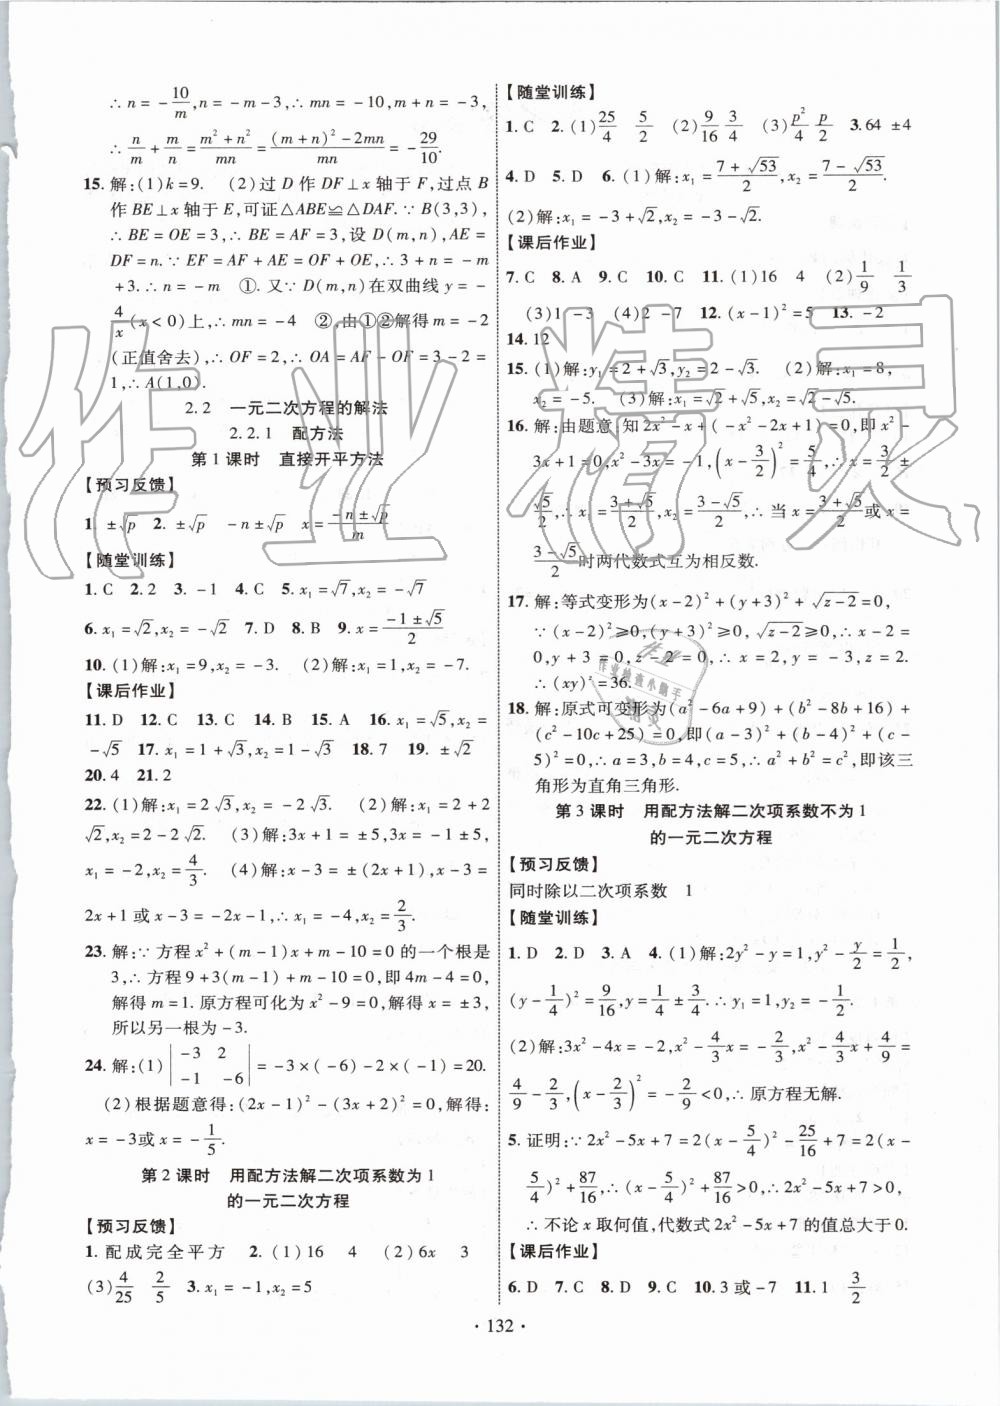 ∴ n = -10/m, n = -m-3, ∴ mn = -10, m+n = -3,
∴ n/m + m/n = (m²+n²)/mn = ((m+n)²-2mn)/mn = -29/10.
15. 解:(1)k=9. (2)过 D 作 DF⊥x 轴于 F,过点 B
作 BE⊥x 轴于 E,可证△ABE≌△DAF. ∵ B(3,3),
∴ BE=OE=3, ∴ BE=AF=3,设 D(m,n),AE=
DF=n. ∵ EF=AF+AE=OF+OE,∴ 3+n=-m
+3,∴ n=-m ①. 又∵ D(m,n)在双曲线 y=-
4/x(x<0)上,∴ mn=-4 ②,由①②解得 m=-2
(正值舍去),∴ OF=2,∴ OA=AF-OF=3-2=
1,∴ A(1,0).
2.2 一元二次方程的解法
2.2.1 配方法
第 1 课时 直接开平方法
【预习反馈】
1. ±√p 2. ±√p -n±√p x=(-n±√p)/m
【随堂训练】
1. C 2. 2 3. -1 4. C 5. x₁=√7,x₂=-√7
6. x₁=√2,x₂=-√2 7. D 8. B 9. x=(-1±√5)/2
10. (1)解:x₁=9,x₂=-3. (2)解:x₁=1,x₂=-7.
【课后作业】
11. D 12. C 13. C 14. B 15. A 16. x₁=√5,x₂=
-√5 17. x₁=1+√3,x₂=1-√3 18. 7 19. ±√2
20. 4 21. 2
22. (1)解:x₁=2√3,x₂=-2√3. (2)解:x₁=2+2
√2,x₂=2-2√2. (3)解:3x+1=±5,3x=-1±5,
x₁=-2,x₂=4/3. (4)解:x-3=±(2x+1),x-3=
2x+1 或 x-3=-2x-1,∴ x₁=-4,x₂=2/3.
23. 解:∵ 方程 x²+(m-1)x+m-10=0 的一个根是
3,∴ 方程 9+3(m-1)+m-10=0,即 4m-4=0,
解得 m=1. 原方程可化为 x²-9=0,解得 x=±3,
所以另一根为-3.
24. 解:(1) |-3 2 ; -1 -6| = -3×(-6)-2×(-1)=20.
(2)根据题意得:(2x-1)²-(3x+2)²=0,解得:
x=-3或 x=-1/5.
第 2 课时 用配方法解二次项系数为 1
的一元二次方程
【预习反馈】
1. 配成完全平方 2. (1)16 4 (2)6x 3
(3)4/25 2/5 3. x₁=-1,x₂=5
【随堂训练】
1. C 2. (1)25/4 5/2 (2)9/16 3/4 (3)p²/4 p/2 3. 64 ±4
4. D 5. D 6. (1)解:x₁=(7+√53)/2,x₂=(7-√53)/2.
(2)解:x₁=-3+√2,x₂=-3-√2.
【课后作业】
7. C 8. A 9. C 10. C 11. (1)16 4 (2)1/9 1/3
(3)1 -3 (4)2 -7 12. (x-1)²=5 13. -2
14. 12
15. (1)解:y₁=2+√3,y₂=2-√3. (2)解:x₁=8,
x₂=-5. (3)解:x₁=√2+√5,x₂=√2-√5.
16. 解:由题意,知 2x²-x+(-x²-2x+1)=0,即 x²-
3x+1=0,x²-3x=-1,(x-3/2)²=5/4,∴ x=3/2±
√5/2,∴ x₁=(3+√5)/2,x₂=(3-√5)/2,∴ 当 x=(3+√5)/2或 x=
(3-√5)/2时两代数式互为相反数.
17. 解:等式变形为(x-2)²+(y+3)²+√z-2=0,
∵(x-2)²≥0,(y+3)²≥0,√z-2≥0,∴ x-2=
0,y+3=0,z-2=0,∴ x=2,y=-3,z=2.
∴(xy)²=36.
18. 解:原式可变形为(a²-6a+9)+(b²-8b+16)+
(c²-10c+25)=0,即(a-3)²+(b-4)²+(c-
5)²=0,∴ a=3,b=4,c=5,∴ a²+b²=c²,即该三
角形为直角三角形.
第 3 课时 用配方法解二次项系数不为 1
的一元二次方程
【预习反馈】
同时除以二次项系数 1
【随堂训练】
1. D 2. D 3. A 4. (1)解:2y²-y=1,y²-y/2=1/2,
(y-1/4)²=9/16,y=1/4±3/4. ∴ y₁=1,y₂=-1/2.
(2)解:3x²-4x=-2,x²-4/3x=-2/3,x²-4/3x+4/9=
4/9-2/3,(x-2/3)²=-2/9<0,∴ 原方程无解.
5. 证明:∵ 2x²-5x+7=2(x-5/4)²-25/16+7=2(x-
5/4)²+87/16,∵ 2(x-5/4)²+87/16>0,∴ 2x²-5x+7>0,
∴ 不论 x 取何值,代数式 2x²-5x+7 的值总大于 0.
【课后作业】
6. D 7. C 8. C 9. D 10. 3 或-7 11. 1 3/2
· 132 ·
作业精灵
作业
作业检查小助手
精灵